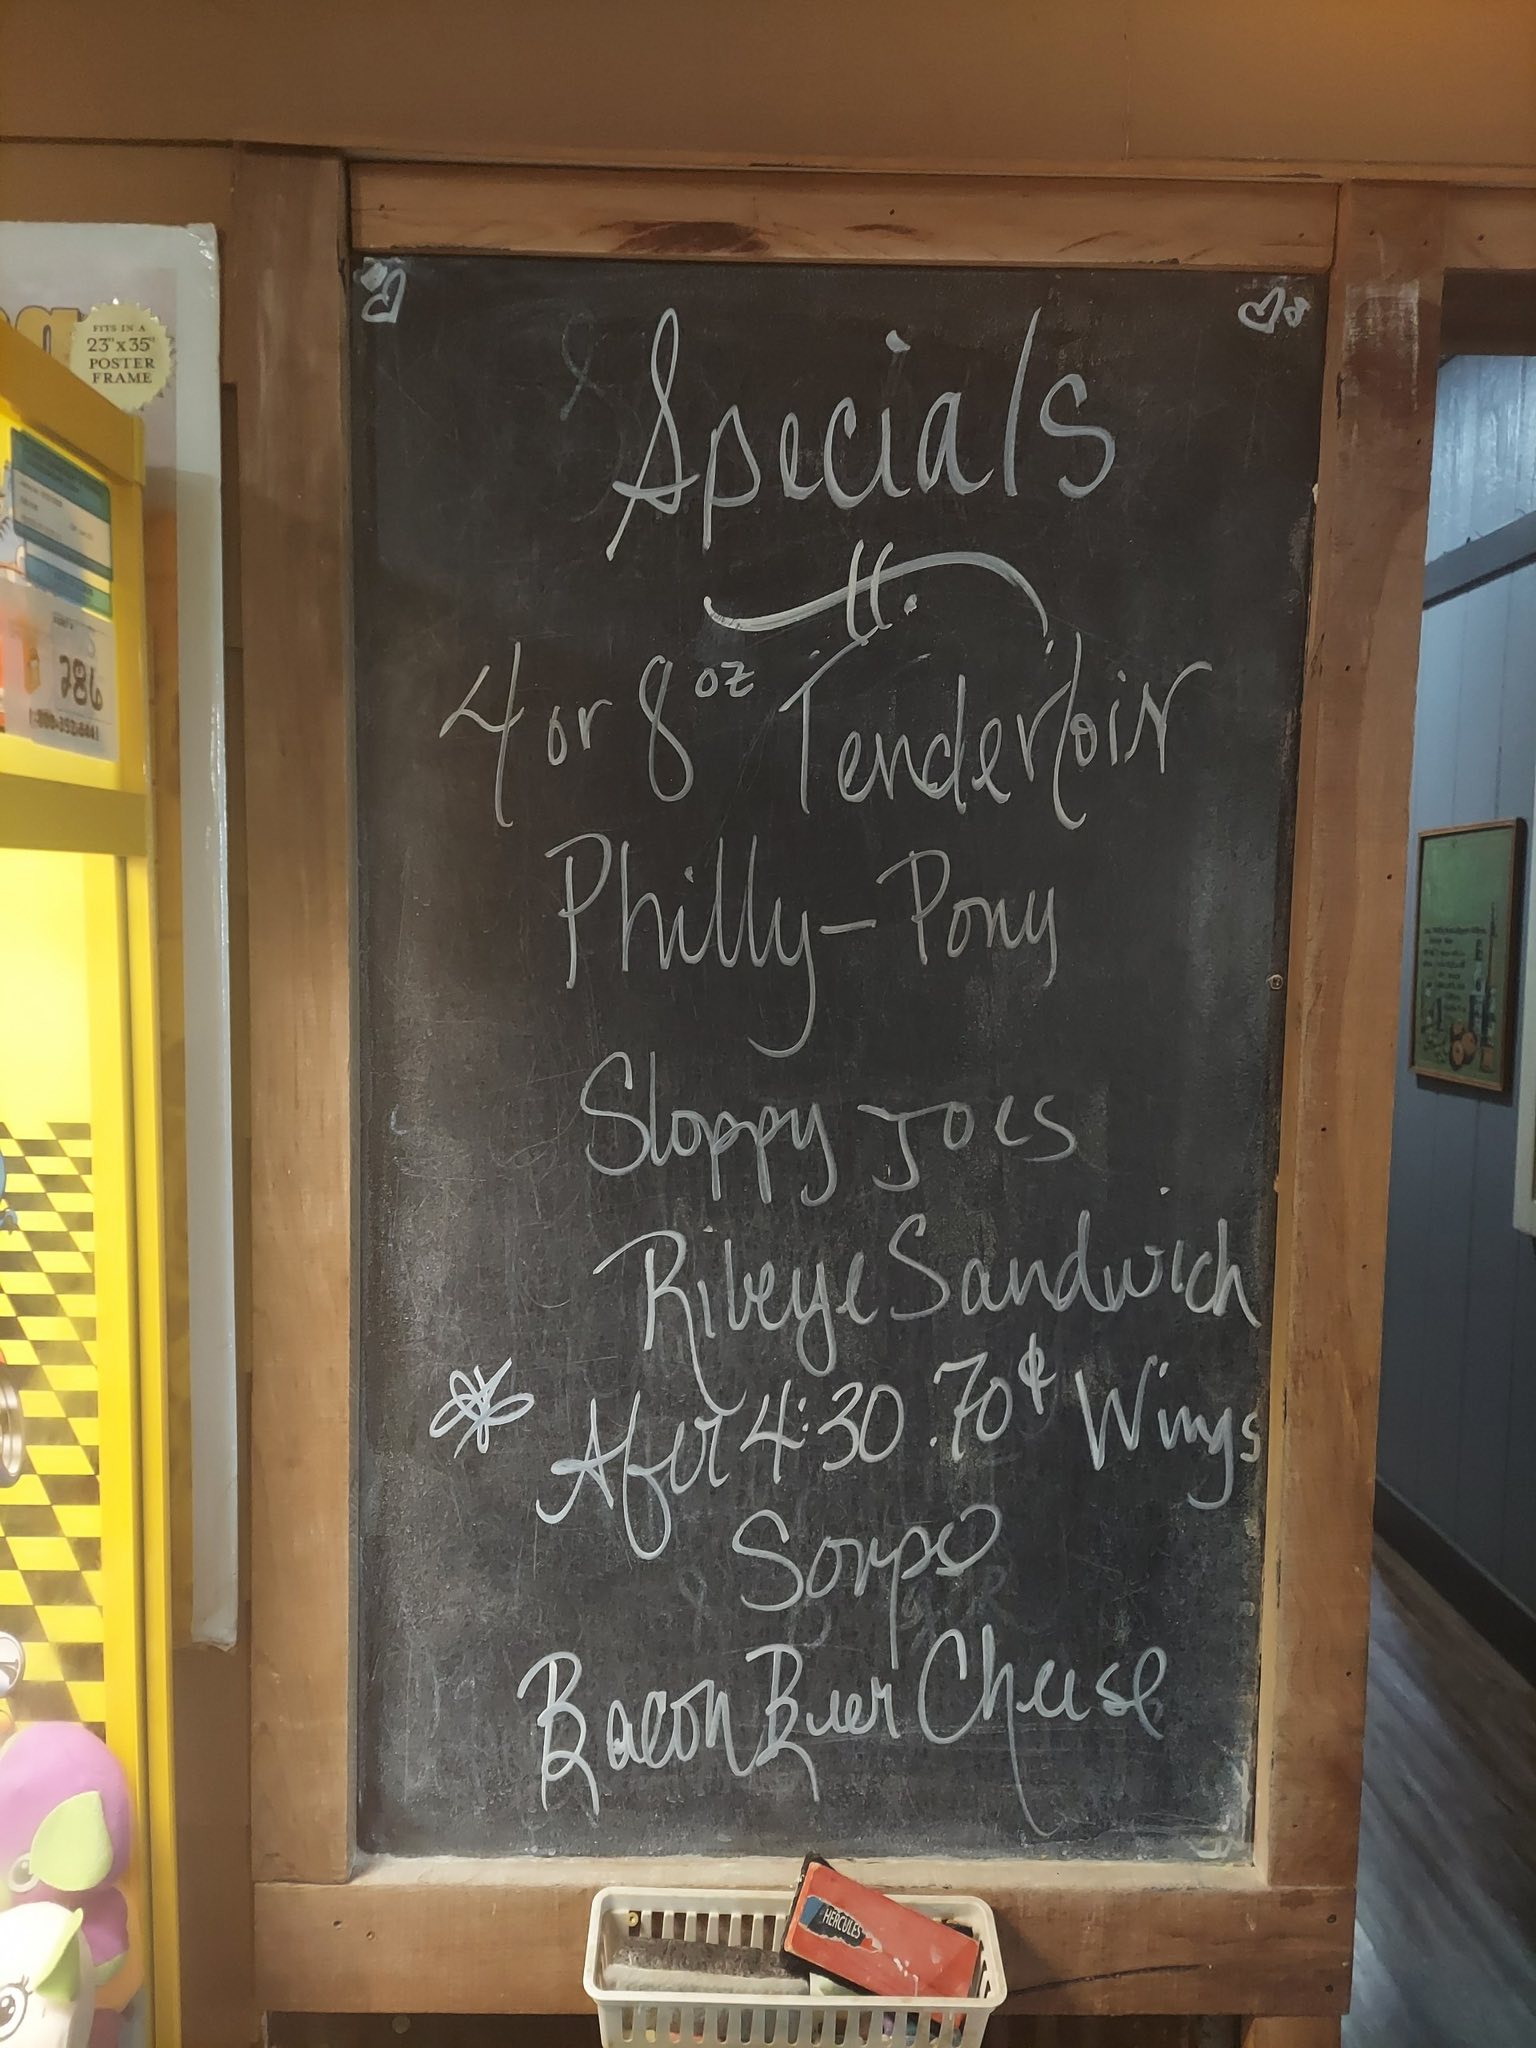 FITS IN A
23"x35"
POSTER
FRAME
286
Specials
4 or 8 oz Tenderloin
Philly - Pony
Sloppy Joes
Ribeye Sandwich
* After 4:30 .70¢ Wings
Bacon Beer Cheese
HERCULES